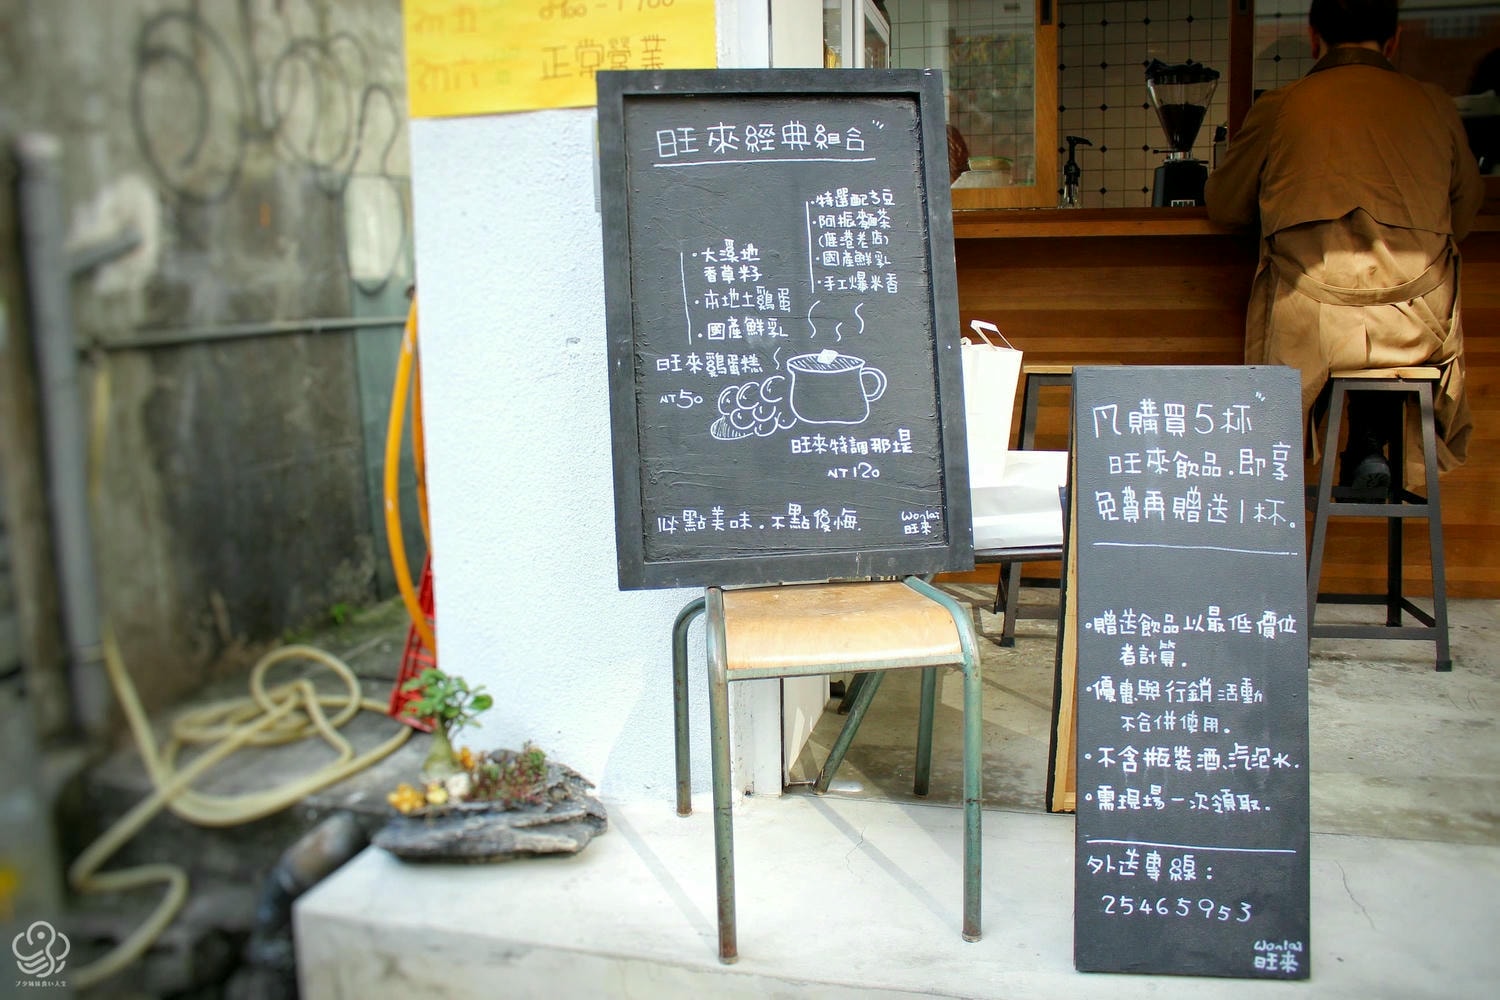 初五
初六
正常營業
旺來經典組合
·特選配方豆
·阿振麵茶
(鹿港老店)
·國產鮮乳
·手工爆米香
·大溪地
香草籽
·本地土雞蛋
·國產鮮乳
旺來雞蛋糕
NT50
旺來特調那堤
NT120
必點美味.不點後悔.
Wonlai
旺來
凡購買5杯
旺來飲品.即享
免費再贈送1杯。
·贈送飲品以最低價位
者計算.
·優惠與行銷活動
不合併使用.
·不含瓶裝酒、汽泡水.
·需現場一次領取.
外送專線:
25465953
Wonlai
旺來